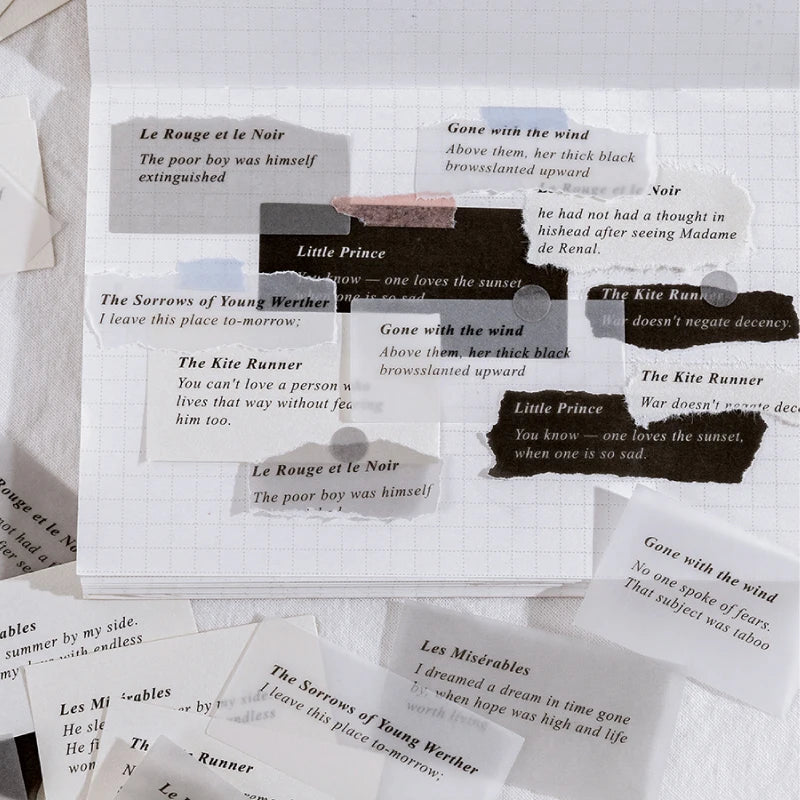 Le Rouge et le Noir
The poor boy was himself
extinguished
Gone with the wind
Above them, her thick black
browsslanted upward
Le Rouge et le Noir
he had not had a thought in
hishead after seeing Madame
de Renal.
Little Prince
You know — one loves the sunset
one is so sad
The Sorrows of Young Werther
I leave this place to-morrow;
The Kite Runner
War doesn't negate decency.
Gone with the wind
Above them, her thick black
browsslanted upward
The Kite Runner
You can't love a person who
lives that way without fearing
him too.
The Kite Runner
War doesn't negate
Little Prince
You know — one loves the sunset,
when one is so sad.
Le Rouge et le Noir
The poor boy was himself
Gone with the wind
No one spoke of fears.
That subject was taboo
Rouge et le
not had a
after
summer by my side.
my days with endless
Les Misérables
He
by my side
He
endless
Les Misérables
I dreamed a dream in time gone
by, when hope was high and life
worth living
The Sorrows of Young Werther
I leave this place to-morrow;
Runner
Le